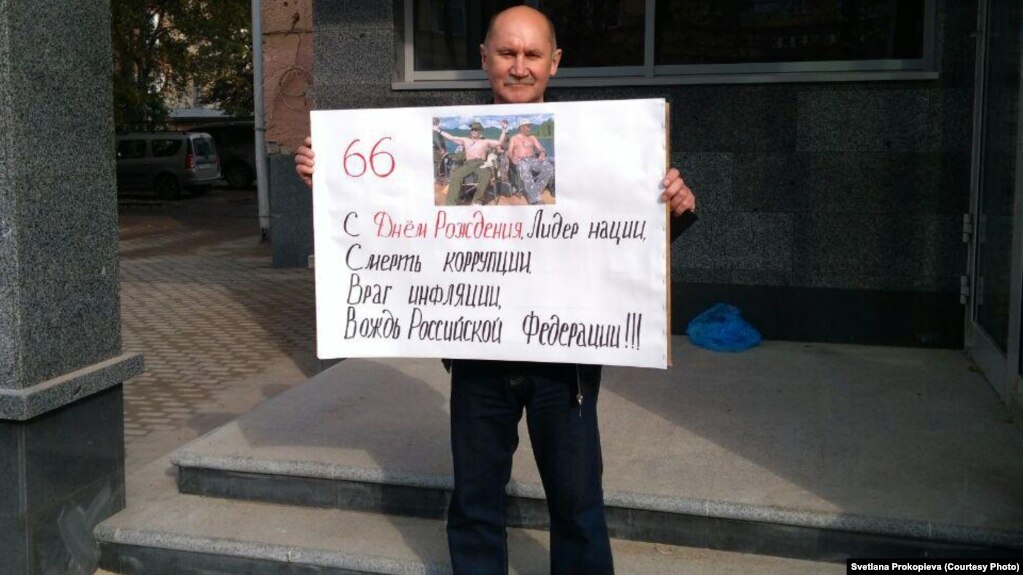 66
С Днём Рождения, Лидер нации,
Смерть коррупции,
Враг инфляции,
Вождь Российской Федерации!!!
Svetlana Prokopieva (Courtesy Photo)